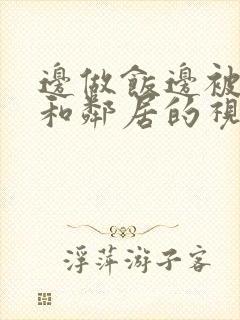 邊做飯邊被
和鄰居的視
浮萍游子客